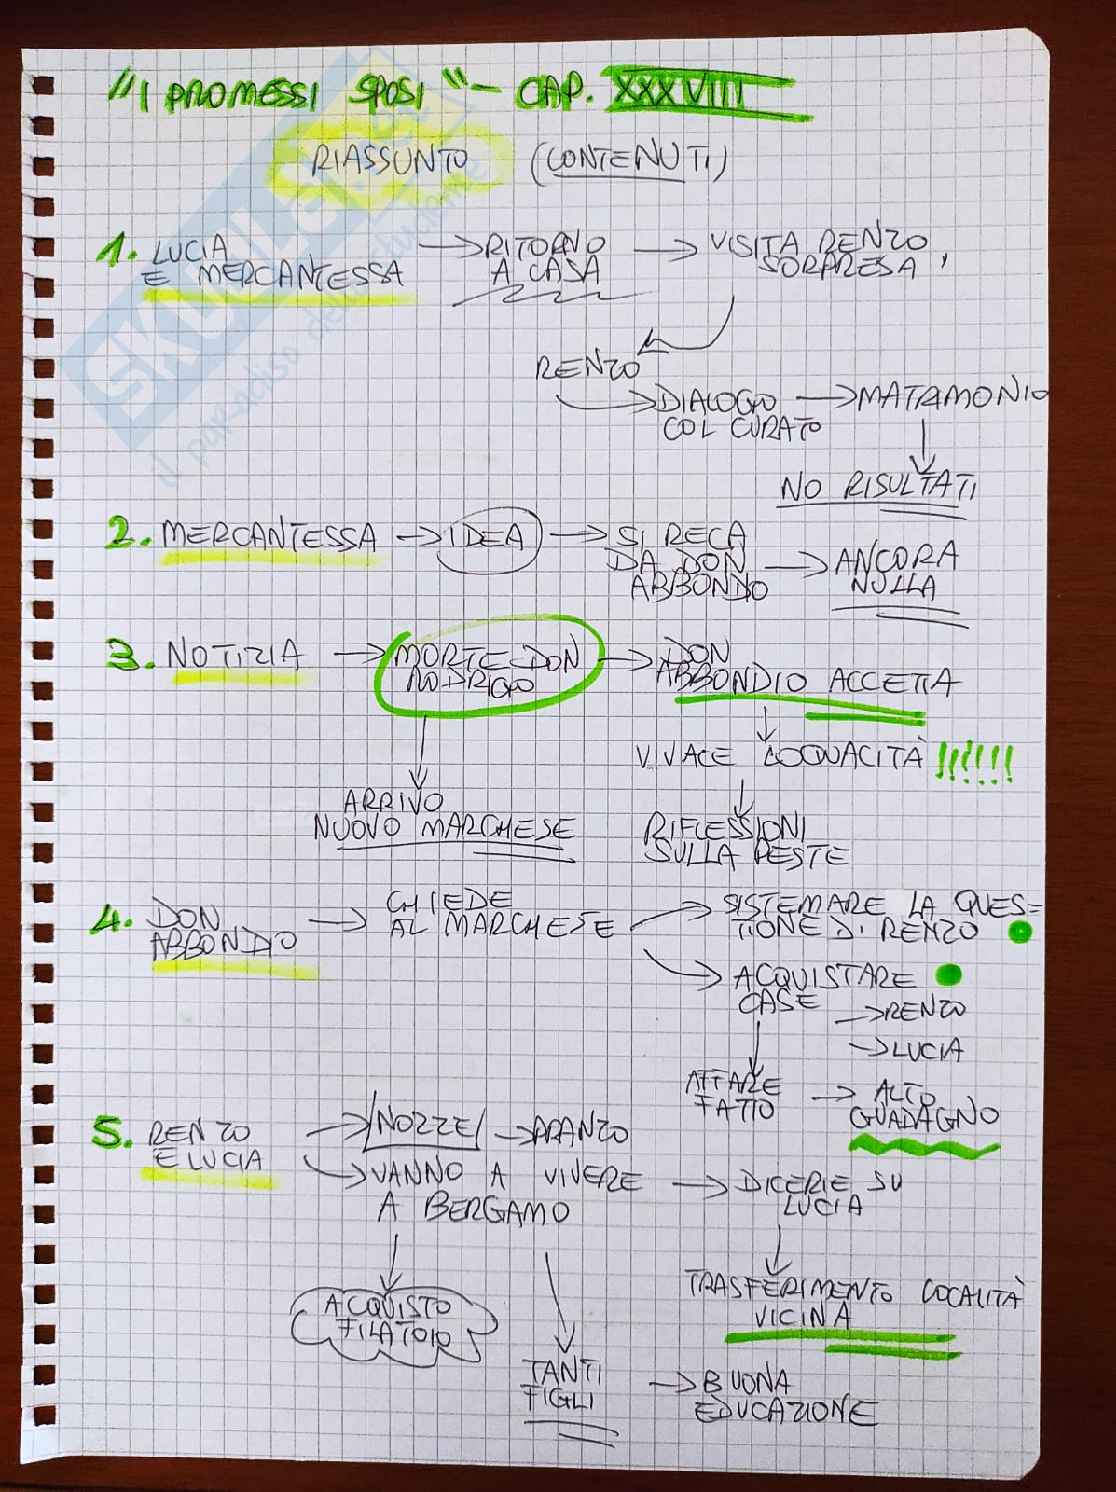 "I PROMESSI SPOSI" - CAP. XXXVIII
RIASSUNTO (CONTENUTI)
1. LUCIA → RITORNO → VISITA RENZO,
E MERCANTESSA A CASA SORPRESA
RENZO
DIALOGO → MATRIMONIO
COL CURATO
NO RISULTATI
2. MERCANTESSA → IDEA → SI RECA
DA DON → ANCORA
ABBONDO NULLA
3. NOTIZIA → MORTE DON → DON
RODRIGO ABBONDIO ACCETTA
VIVACE LOQUACITÀ !!!!!!
ARRIVO
NUOVO MARCHESE
RIFLESSIONI
SULLA PESTE
4. DON → CHIEDE → SISTEMARE LA QUES=
ABBONDIO AL MARCHESE TIONE DI RENZO
→ ACQUISTARE
CASE → RENZO
→ LUCIA
AFFARE → ALTO
FATTO GUADAGNO
5. RENZO → NOZZE → PRANZO
E LUCIA → VANNO A VIVERE → DICERIE SU
A BERGAMO LUCIA
TRASFERIMENTO LOCALITÀ
VICINA
ACQUISTO
FILATOIO
TANTI → BUONA
FIGLI EDUCAZIONE